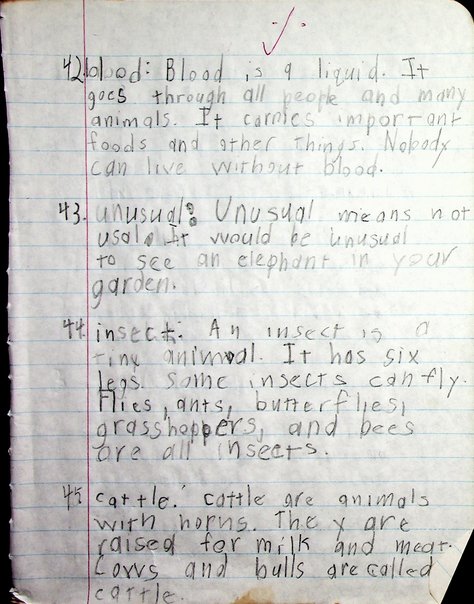 42. blood: Blood is a liquid. It
goes through all people and many
animals. It carries important
foods and other things. Nobody
can live without blood.
43. unusual: Unusual means not
usal. It would be unusual
to see an elephant in your
garden.
44. insect: An insect is a
tiny animal. It has six
legs. Some insects can fly.
Flies, ants, butterflies,
grasshoppers, and bees
are all insects.
45. cattle: cattle are animals
with horns. They are
raised for milk and meat.
Cows and bulls are called
cattle.